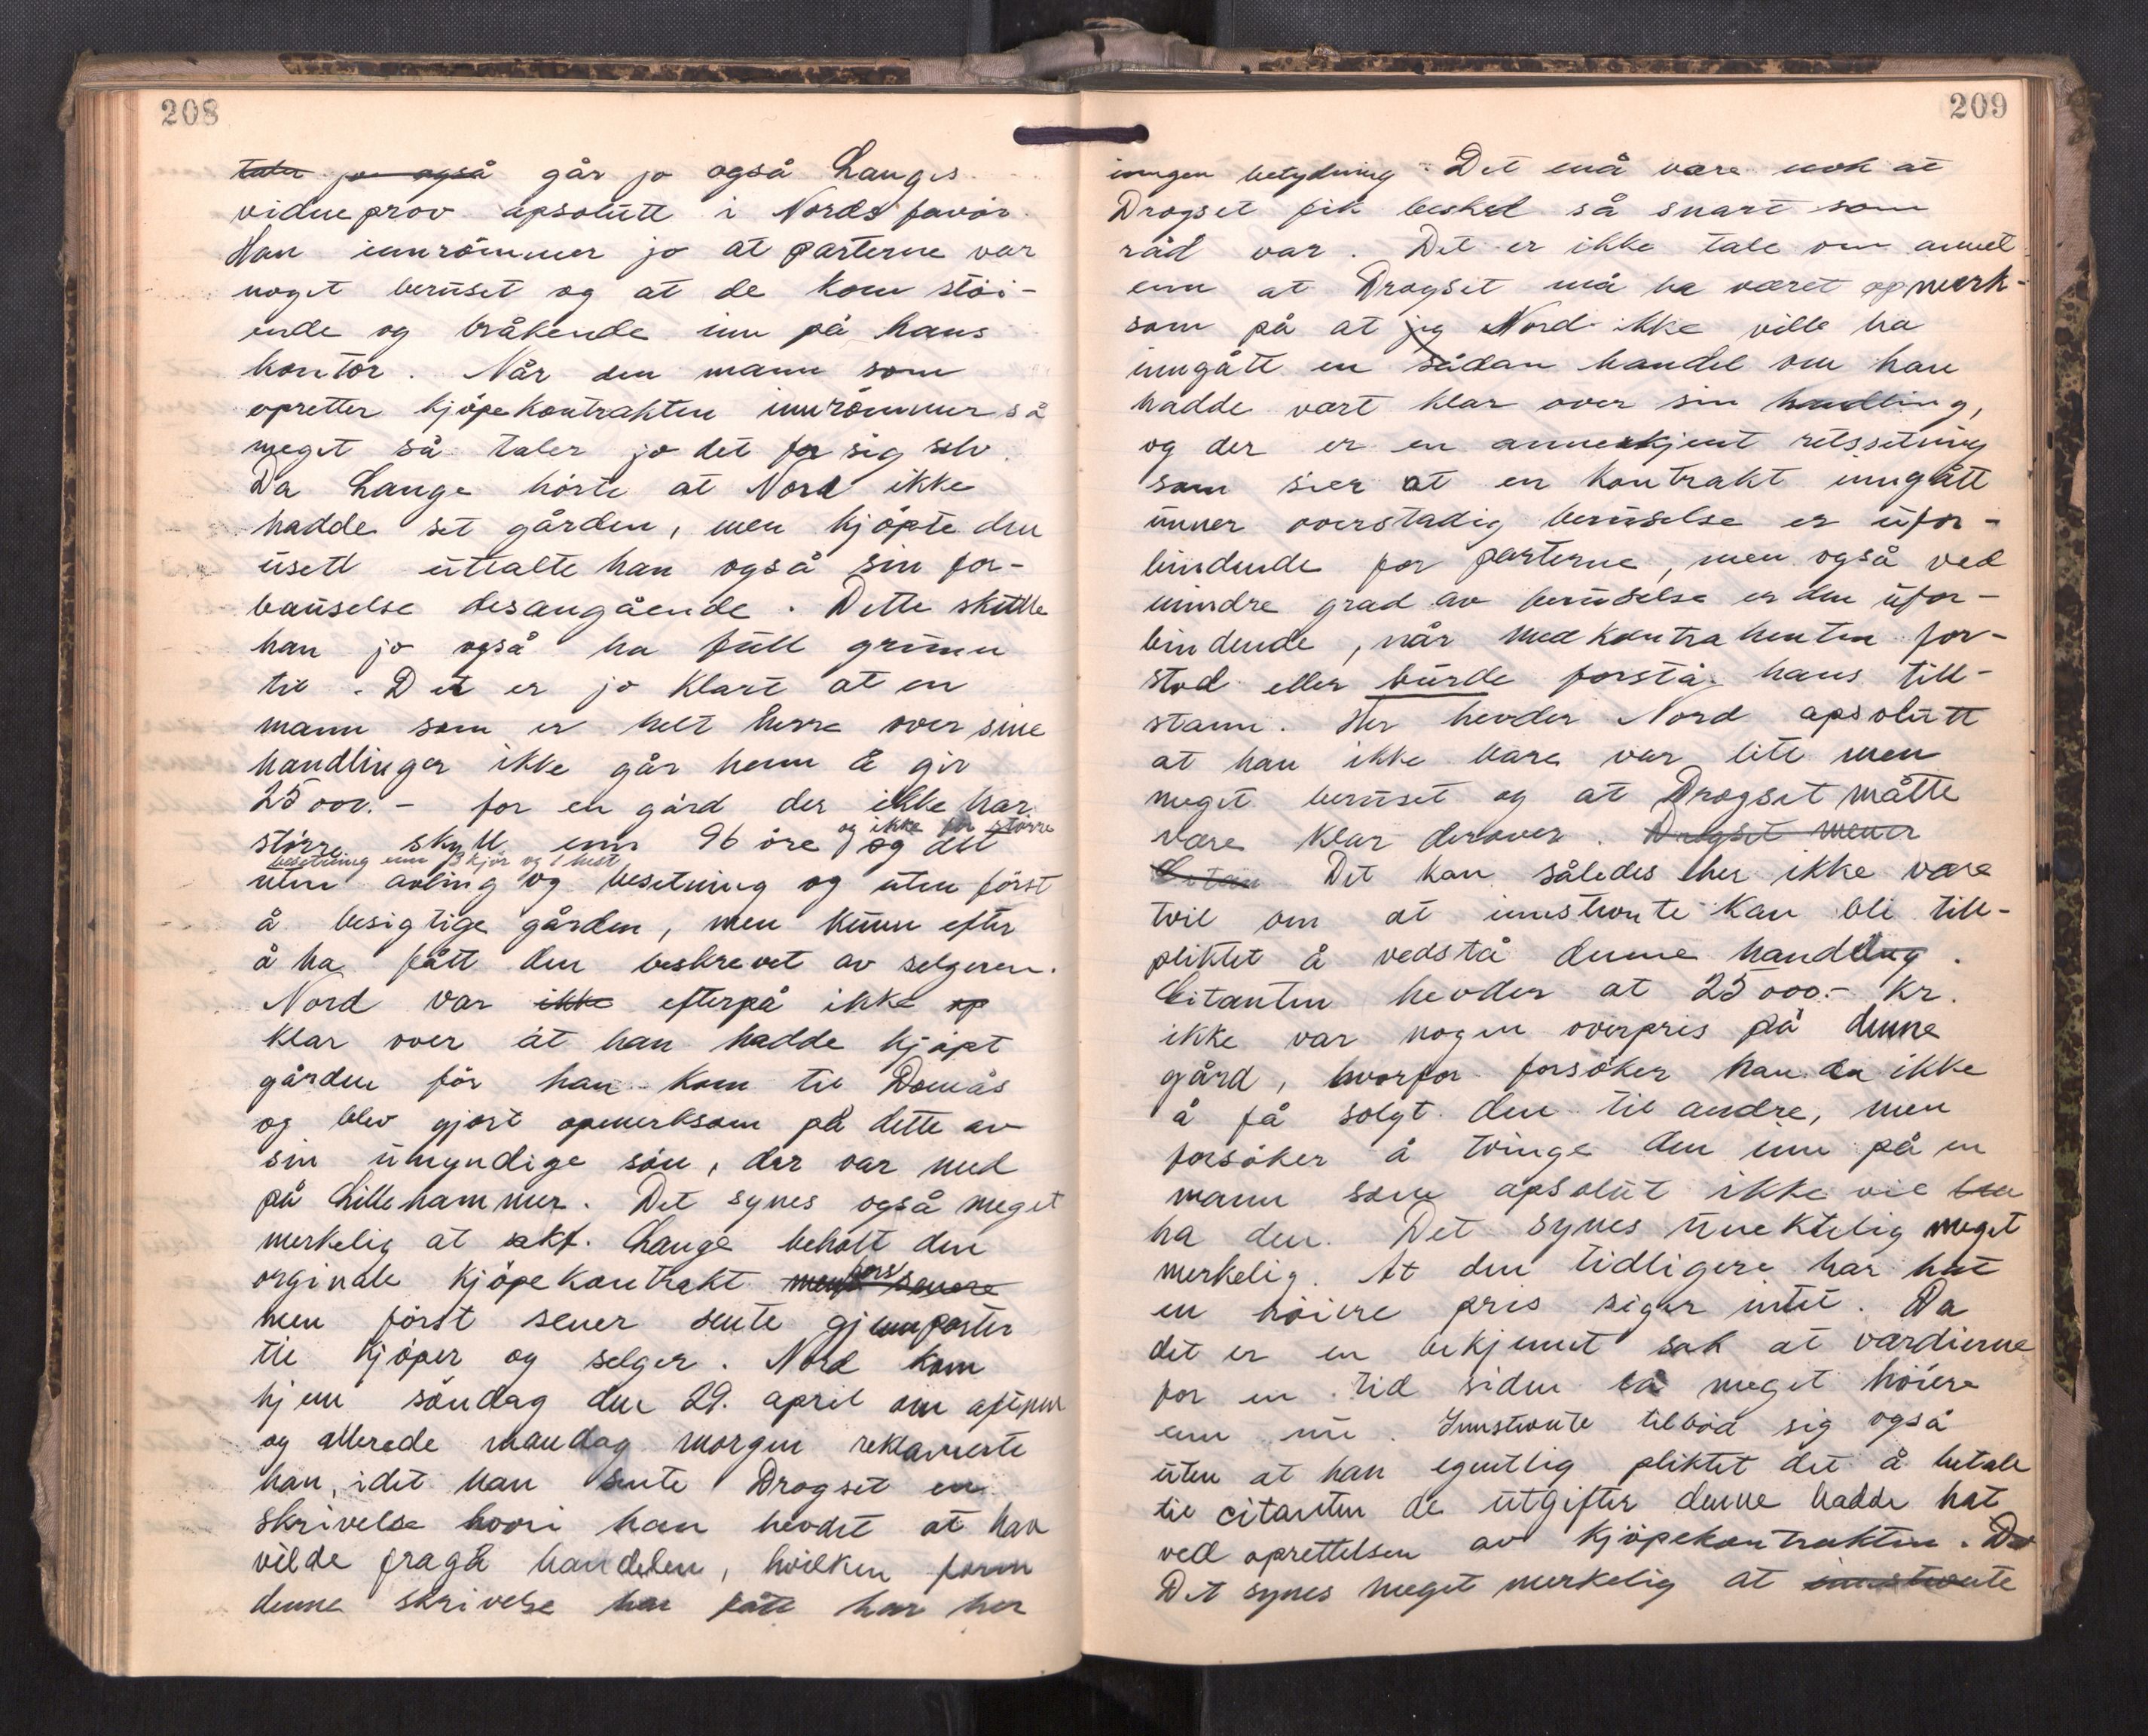 208
går jo også Langes
vidneprov apsolutt i Nords favør.
Han innrömmer jo at parterne var
noget beruset og at de kom stöi-
ende og bråkende inn på hans
kontor. Når den mann som
opretter kjöpekontrakten innrömmer så
meget så taler jo det for sig selv.
Da Lange hörte at Nord ikke
hadde set gården, men kjöpte den
usett uttalte han også sin for-
bauselse desangående. Dette skulle
han jo også ha full grunn
til. Det er jo klart at en
mann som er helt herre over sine
handlinger ikke går henn & gir
25000.- for en gård der ikke har
og ikke for större
större skyll enn 96 öre og det
besetning enn 3 kjör og 1 hest
uten avling og besetning og uten först
å besigtige gården, men kunn efter
å ha fått den beskrevet av selgeren.
Nord var ikke efterpå ikke op
klar over at han hadde kjöpt
gården för han kom til Domås
og blev gjort opmerksom på dette av
sin umyndige sön, der var med
på Lillehammer. Det synes også meget
merkelig at sakf. Lange beholt den
orginale kjöpekontrakt men senere
men först sener sente gjennparter
til kjöper og selger. Nord kom
hjem söndag den 29. april om aftenen
og allerede mandag morgen reklamerte
han, idet han sente Drogset en
skrivelse hvori han hevdet at han
vilde fragå handelen, hvilken form
denne skrivelse har fått har her
209
inngen betydning. Det må være nok at
Drogset fik beskel så snart som
råd var. Det er ikke tale om annet
enn at Drogset må ha været opmerk-
som på at jeg Nord ikke ville ha
inngått en sådan handel om han
hadde vært klar over sin handling,
og der er en annerkjent retssetning
som sier at en kontrakt inngått
unner overstadig beruselse er ufor-
bindende for parterne, men også ved
mindre grad av beruselse er den ufor-
bindende, når medkontrahenten for-
stod eller burde forstå hans till-
stann. Her hevder Nord apsolutt
at han ikke bare var litt men
meget beruset og at Drogset måtte
være klar derover. Drogset mener
Det kan således her ikke være
tvil om at innstevnte kan bli till-
pliktet å vedstå denne handling.
Citanten hevder at 25000.- kr.
ikke var nogen overpris på denne
gård, hvorfor forsöker han da ikke
å få solgt den til andre, men
forsöker å tvinge den inn på en
mann som apsolut ikke vil
ha den. Det synes unektelig meget
merkelig. At den tidligere har hat
en höiere pris siger intet. Da
det er en bekjennt sak at værdierne
for en tid siden lå meget höiere
enn nu. Innstevnte tilböd sig også
uten at han egentlig pliktet det å betale
til citanten de utgifter denne hadde hat
ved oprettelsen av kjöpekontrakten. Det
Det synes meget merkelig at innstevnte